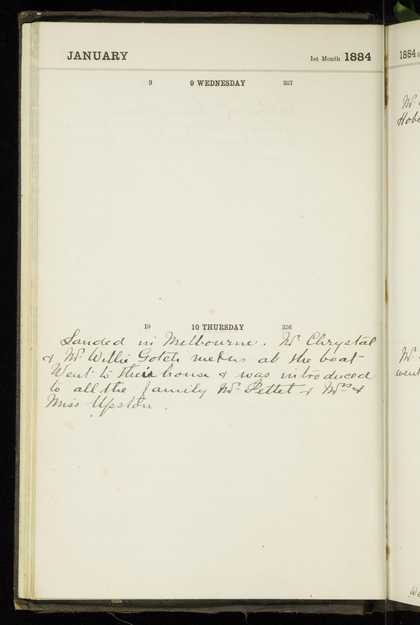 JANUARY 1st Month 1884
9 9 WEDNESDAY 357
10 10 THURSDAY 356
Landed in Melbourne. Mr Chrystal
& Mr Willie Gotch met us at the boat
Went to their house & was introduced
to all the family Mr Pettet & Mrs &
Miss Upston.
1884
Mr
Hoba
Mr
went